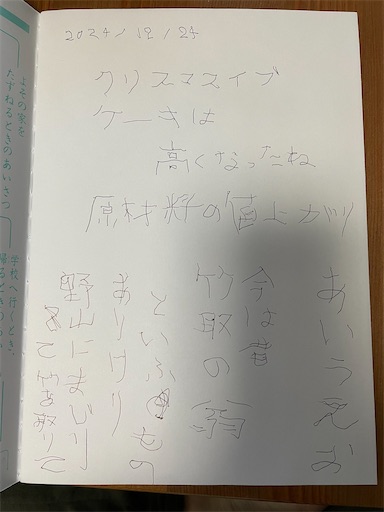 2024/12/24
クリスマスイブ
ケーキは
高くなったね
原材料の値上がり
あいうえお
今は昔
竹取の翁
といふもの
ありけり
野山にまじり
て竹を取りて
よその家を
たずねるときのあいさつ
学校へ行くとき、
帰るときの